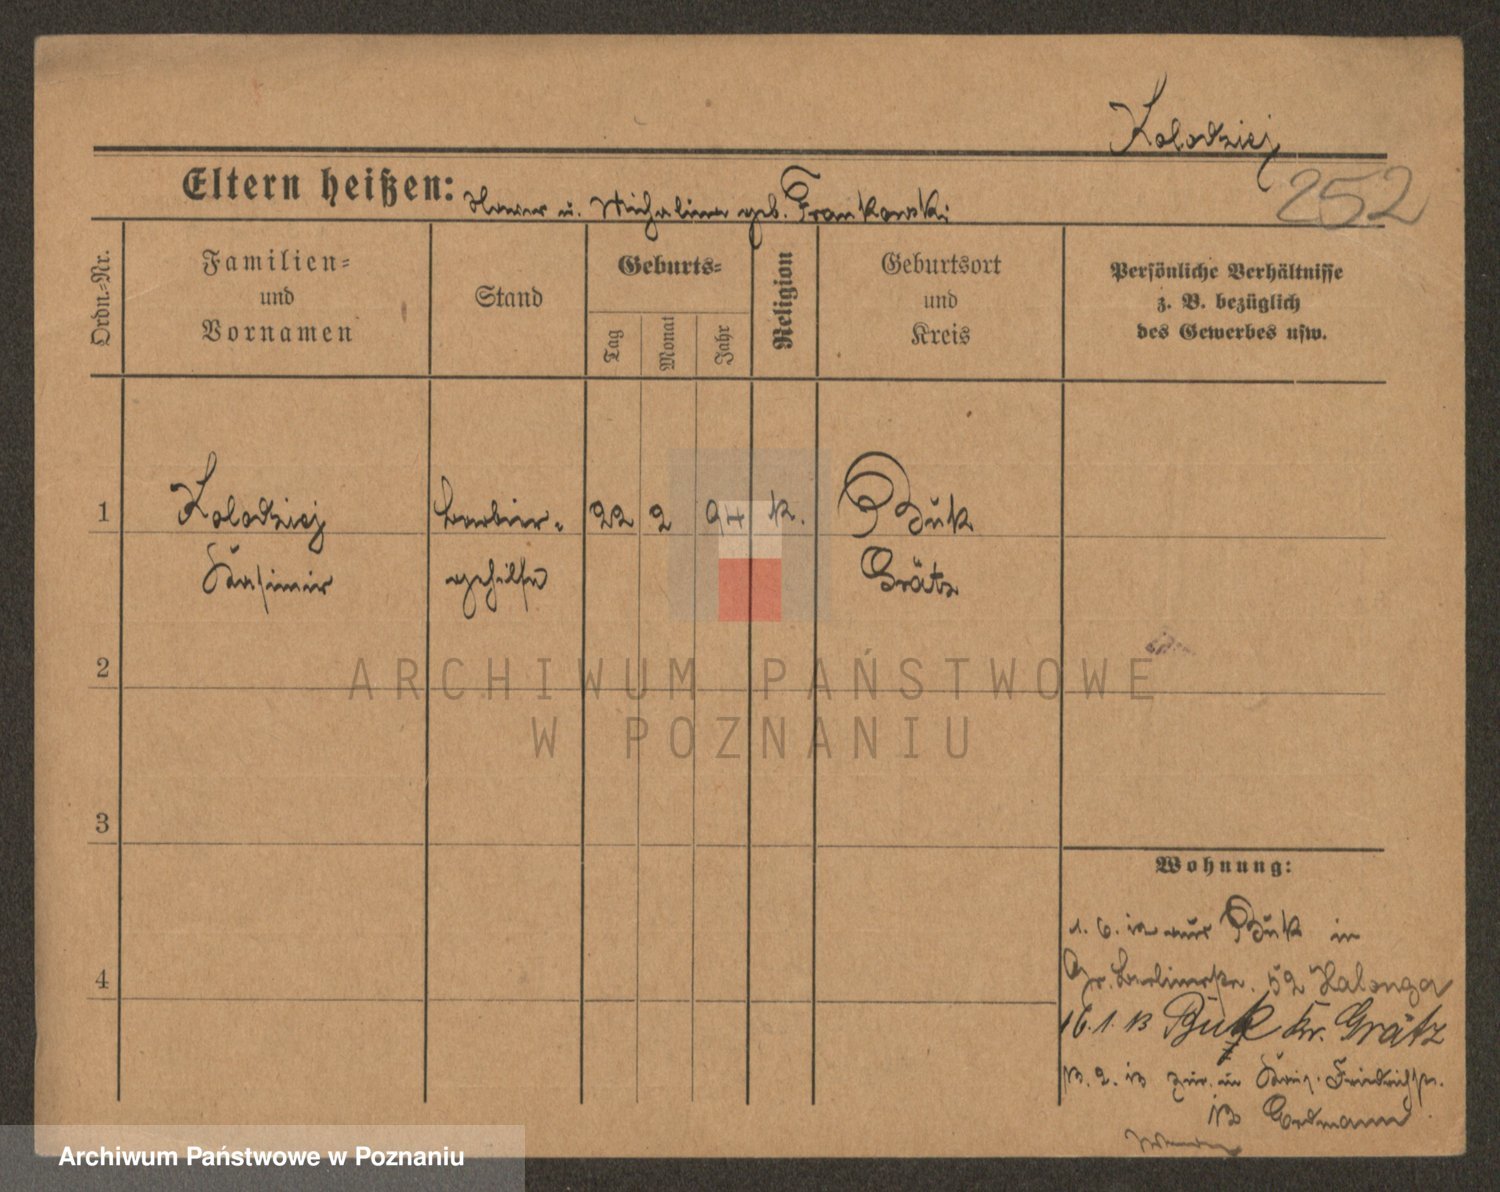 Kolodziej
252
Eltern heißen: u. Michalina geb. Frankowski
Ordn.-Nr.
Familien-
und
Vornamen
Stand
Geburts-
Tag
Monat
Jahr
Religion
Geburtsort
und
Kreis
Persönliche Verhältnisse
z. B. bezüglich
des Gewerbes usw.
1
Kolodziej
Kasimir
Barbier-
gehilfe
22 2 94 k.
Buk
Grätz
2
3
4
Wohnung:
1. 6. 12 aus Buk in
Gr. Berlinerstr. 52
16. 1. 13 Buk Kr. Grätz
13. 2. 13 zur. in Friedrichstr.
13 Erdmann
ARCHIWUM PAŃSTWOWE
W POZNANIU
Archiwum Państwowe w Poznaniu